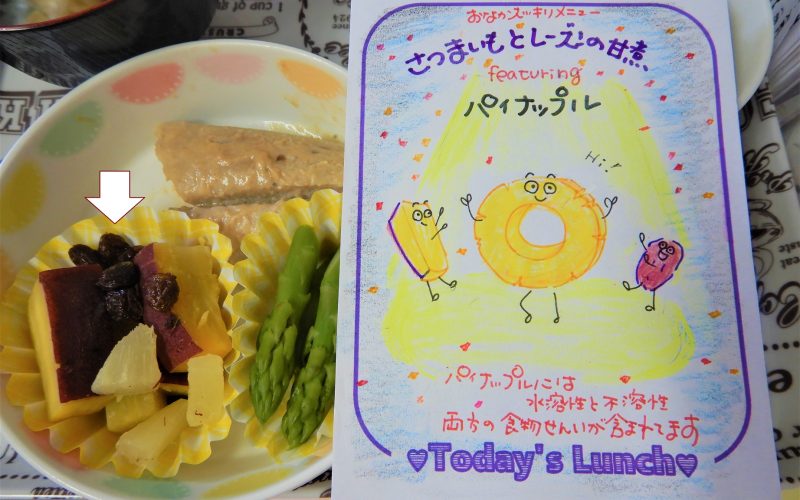 おなかスッキリメニュー
さつまいもとレーズンの甘煮
featuring
パイナップル
Hi!
パイナップルには
水溶性と不溶性
両方の食物せんいが含まれてます
♥Today's Lunch♥